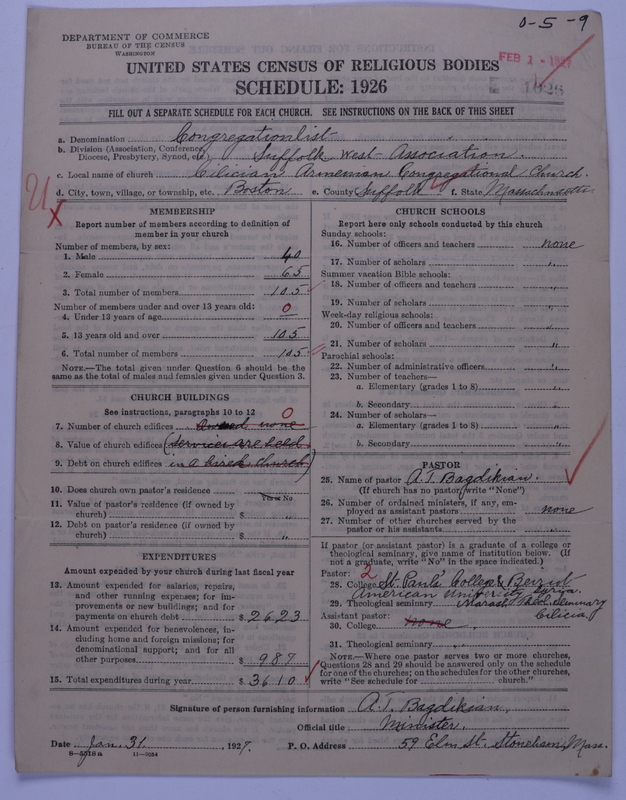 0-5-9
DEPARTMENT OF COMMERCE
BUREAU OF THE CENSUS
WASHINGTON
FEB 1 - 1927
UNITED STATES CENSUS OF RELIGIOUS BODIES
SCHEDULE: 1926
FILL OUT A SEPARATE SCHEDULE FOR EACH CHURCH. SEE INSTRUCTIONS ON THE BACK OF THIS SHEET
a. Denomination Congregationlist
b. Division (Association, Conference, Diocese, Presbytery, Synod, etc.) Suffolk West Association.
c. Local name of church Cilician Armenian Congregational Church.
d. City, town, village, or township, etc. Boston e. County Suffolk f. State Massachusetts
MEMBERSHIP
Report number of members according to definition of
member in your church
Number of members, by sex:
1. Male 40
2. Female 65
3. Total number of members 105
Number of members under and over 13 years old:
4. Under 13 years of age 0
5. 13 years old and over 105
6. Total number of members 105
NOTE.—The total given under Question 6 should be the
same as the total of males and females given under Question 3.
CHURCH BUILDINGS
See instructions, paragraphs 10 to 12 0
7. Number of church edifices owned none
8. Value of church edifices (services are held
9. Debt on church edifices in a hired church)
10. Does church own pastor's residence Yes or No
11. Value of pastor's residence (if owned by
church) $ "
12. Debt on pastor's residence (if owned by
church) $ "
EXPENDITURES
Amount expended by church during last fiscal year
13. Amount expended for salaries, repairs,
and other running expenses; for im-
provements or new buildings; and for
payments on church debt $ 2623
14. Amount expended for benevolences, in-
cluding home and foreign missions; for
denominational support; and for all
other purposes $ 987
15. Total expenditures during year $ 3610
CHURCH SCHOOLS
Report here only schools conducted by this church
Sunday schools:
16. Number of officers and teachers none
17. Number of scholars "
Summer vacation Bible schools:
18. Number of officers and teachers "
19. Number of scholars "
Week-day religious schools:
20. Number of officers and teachers "
21. Number of scholars "
Parochial schools:
22. Number of administrative officers "
23. Number of teachers—
a. Elementary (grades 1 to 8) "
b. Secondary "
24. Number of scholars—
a. Elementary (grades 1 to 8) "
b. Secondary "
PASTOR
25. Name of pastor A. T. Bagdikian.
(If church has no pastor, write "None")
26. Number of ordained ministers, if any, em-
ployed as assistant pastors none
27. Number of other churches served by the
pastor or his assistants "
If pastor (or assistant pastor) is a graduate of a college or
theological seminary, give name of institution below. (If
not a graduate, write "No" in the space indicated.)
Pastor: 2
28. College St. Paul's College & Beirut
American University Syria.
29. Theological seminary Marash Theol. Seminary
Cilicia.
Assistant pastor:
30. College none
31. Theological seminary "
NOTE.—Where one pastor serves two or more churches,
Questions 28 and 29 should be answered only on the schedule
for one of the churches; on the schedules for the other churches,
write "See schedule for church."
Signature of person furnishing information A. T. Bagdikian,
Official title Minister.
Date Jan. 31, 1927. P. O. Address 59 Elm St. Stoneham, Mass.
8-5518a 11-9034